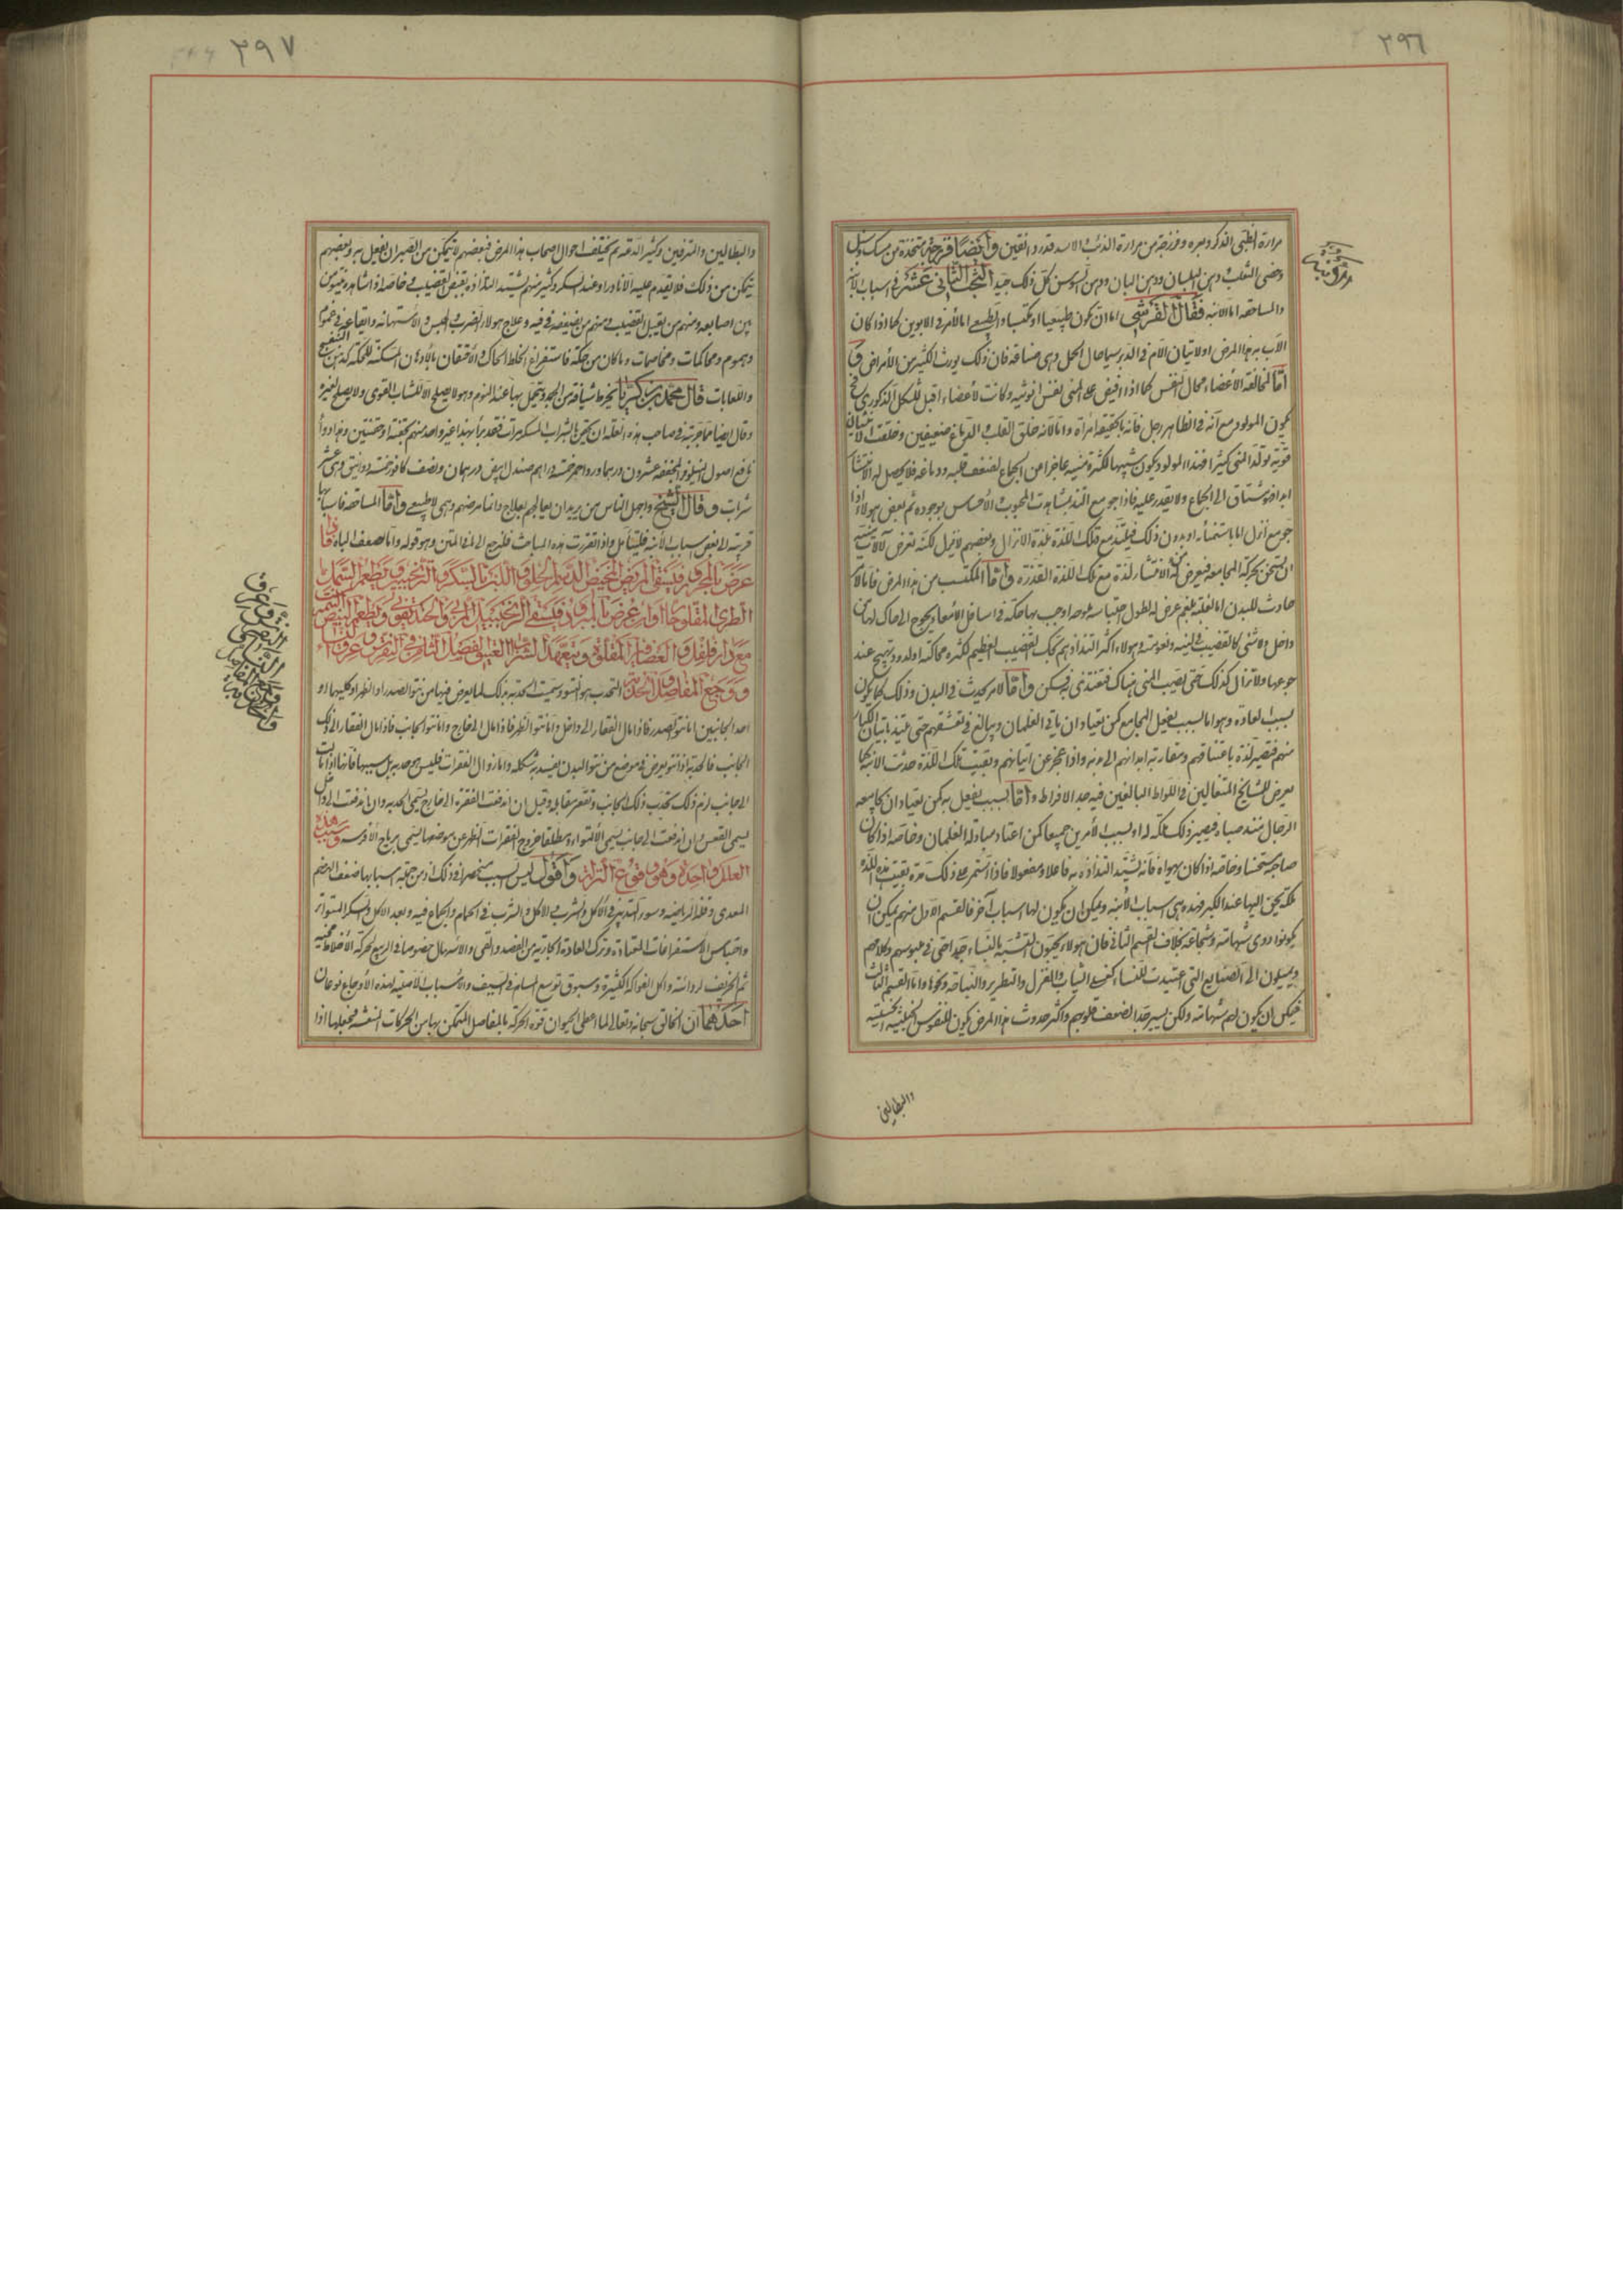 ٢٩٦
مرارة الظبى الذكر وبعره وفرزجة من مرارة الذئب والاسد قدر دانقين وايضا فرزجة متخذة من مسك وسنبل
وخصى الثعلب ودهن البلسان ودهن البان ودهن السوسن كل ذلك جيد البحث الثانى عشر فى اسباب الابنة
والمساحقة اما الابنة فقال القرشى اما ان تكون طبيعيا او مكتسبا والطبيعى اما لامر فى الابوين كما اذا كان
الاب به هذا المرض او لاتيان الام فى الدبر سيما حال الحمل وهى مضاعة فان ذلك يورث لكثير من الأمراض و
اما لمخالفة الاعضاء بحال النفس كما اذا افيض على المنى نفس انوثية وكانت الأعضاء اقبل للشكل الذكورى فح
يكون المولود مع انه فى الظاهر رجل فانه بالحقيقة امرأة واما لانه خلق القلب والدماغ ضعيفين وخلقت الانثيان
قوية تولد المنى كثيرا فهذا المولود يكون شبيها لكثرة منيه عاجزا من الجماع لضعف قلبه ودماغه فلا يحصل له الانتشار
ابدا فيشتاق الى الجماع ولا يقدر عليه فاذا جومع التذ بمشاهدة المحبوب والاحساس بوجوده ثم بعض هولاء اذا
جومع انزل اما باستمنائه او بدون ذلك فيلتذ مع تلك اللذة بلذة الانزال وبعضهم لا ينزل لكنه تعرض لآلات منيه
ان يسخن بحركة المجامعة فيعرض له الانتشار لذة مع تلك اللذة القذرة واما المكتسب من هذا المرض فاما لامر
حادث للبدن اما لغلبة بلغم عرض له لطول احتباسه ملوحة اوجب بها حكة فى اسافل الأمعاء يحوج الى حاك لها من
داخل ولا شئ كالقضيب فى لينه ونعومته وهولاء اكثر التذاذهم بحك القضيب العظيم لكثرة محاكته او لدود يهيج عند
جوعها ولا تزال كذلك حتى يصيب المنى هناك فتغتذى به فيسكن واما لامر يحدث فى البدن وذلك كما يكون
بسبب العادة وهو اما بسبب يفعل المجامع كمن يعتاد ان ياتى الغلمان ويبالغ فى تعشقهم حتى يلتذ باتيان الكبار
منهم فتصير لذة باعتناقهم ومقاربة ابدانهم الى بدنه واذا عجز عن اتيانهم وبقيت تلك اللذة حدثت الابنة كما
يعرض للمشايخ المتعالين فى اللواط البالغين فيه حد الافراط واما بسبب يفعل به كمن يعتاد ان يجامعه
الرجال منذ صباه فيصير ذلك ملكة له او بسبب الأمرين جميعا كمن اعتاد مبادلة الغلمان وخاصة اذا كان
صاحبه مستحسنا وخاصة اذا كان يهواه فانه يشتد التذاذه به فاعلا ومفعولا فاذا استمر على ذلك مدة بقيت هذه اللذة
ملكة يحن اليها عند الكبر فهذه هى اسباب الأبنة ويمكن ان يكون لها اسباب آخر فالقسم الاول منهم يمكن ان
يكونوا ذوى شهامة وشجاعة بخلاف القسم الثانى فان هولاء يحبون التشبه بالنساء جدا حتى فى ملبوسهم وكلامهم
ويميلون الى الصنايع التى اعتيدت للنساء كغسل الثياب والغزل والتطريز والنياحة ونحوها واما القسم الثالث
فيمكن ان يكون لهم شهامة ولكن يسير جدا لضعف قلوبهم واكثر حدوث هذا المرض يكون للنفوس الخبيثة الخسيسة
والبطالين
٢٩٧
والبطالين والمترفين وكثيرا لدعة ثم يختلف احوال اصحاب هذا المرض فبعضهم لا يتمكن من الصبر ان يفعل به وبعضهم
يتمكن من ذلك فلا يقدم عليه الا نادرا وعند السكر وكثير منهم يشتد التذاذه بقبض القضيب خاصة اذا شاهده يتقوس
بين اصابعه ومنهم من يقبل القضيب ومنهم من يضعه فى فيه وعلاج هولاء الضرب والحبس والاستهانة وايقاعهم فى غموم
وهموم ومحاكمات ومخاصمات وما كان من حكة فاستفراغ الخلط الحاك والاحتقان بالأدهان المسكنة للحكة كدهن البنفسج
واللعابات قال محمد بن زكريا
وقال ايضا مما جربته فى صاحب هذه العلة ان
نافع اصول النيلوفر المجففة عشرون درهما ورد احمر خمسة دراهم صندل ابيض درهمان ونصف كافور خمسة دوانيق وهى عشر
شربات وقال الشيخ واجهل الناس من يريد ان يعالجهم بعلاج وانما مرضهم وهمى لا طبيعى واما المساحقة فاسبابها
قريبة الى بعض اسباب الأبنة فليتأمل واذا تقررت هذه المباحث فلنرجع الى الفاظ المتن وهو قوله واما ضعف الباه فان
عرض بالمحرور فيسقى المريض المخيض الدسم الحلو واللبن بالسكر والترنجبين ويطعم السمك
الطرى المقلو حارا وان عرض بالمبرود فيسقى الزنجبيل المربى ويطعم البيض النيمبرشت
مع دار فلفل والعصافير المقلوة ويتعهد الشراب العتيق الفصل الثامن فى النقرس وعرق النساء
ووجع المفاصل والحدبة التحدب هو النتو وسميت الحدبة بذلك لما يعرض فيها من نتو الصدر او الظهر او كليهما او
احد الجانبين اما نتو الصدر فاذا مال الفقار الى داخل واما نتو الظهر فاذا مال الى خارج واما نتو الجانب فاذا مال الفقار الى ذلك
الجانب فالحدبة اذا نتو يعرض فى موضع من نتو البدن يفسد به شكله واما زوال الفقرات فليس هو حدبة بل سببها فانها اذا مالت
الى جانب لزم ذلك تحدب ذلك الجانب وتقعر مقابله وقيل ان اندفعت الفقرة الى خارج يسمى الحدبة وان اندفعت الى داخل
يسمى القعس وان اندفعت الى جانب يسمى الالتواء ومطلقا خروج الفقرات الظهر عن موضعها يسمى برياح الأفرسة وسبب هذه
العلل واحدة وهو وقوع النزلة واقول ليس السبب منحصرا فى ذلك اذ من جملة اسبابها ضعف الهضم
المعدى وقلة الرياضة وسوء التدبير فى الأكل والشرب والأكل والشرب فى الحمام والجماع فيه وبعد الاكل والسكر المتواتر
واحتباس الاستفراغات المعتادة وترك العادة الجارية من الفصد والقى والاسهال خصوصا فى الربيع لحركة الأخلاط فيه
ثم الخريف لرداءته واكل الفواكه الكثيرة وسبوق توسع المسام فى الصيف والأسباب الأصلية لهذه الأوجاع نوعان
احدهما ان الخالق سبحانه وتعالى لما اعطى الحيوان قوة الحركة بالمفاصل المتمكن بها من الحركات المتفننة فجعلها اذا